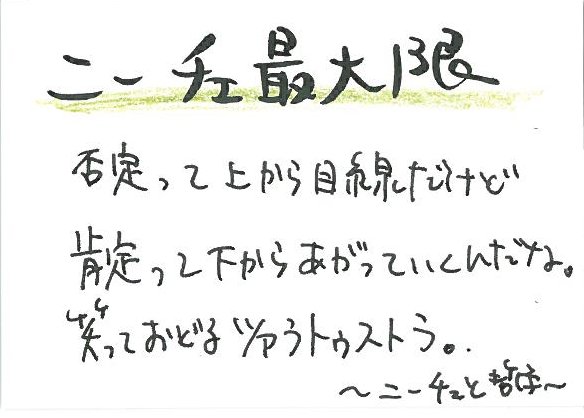 ニーチェ最大限
否定って上から目線だけど
肯定って下からあがっていくんだな。
笑っておどるツァラトゥストラ。
〜ニーチェと哲学〜